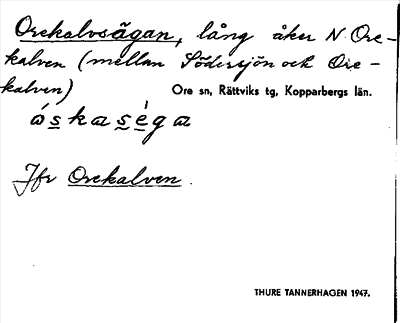 Orekalvsägan, lång åker N. Ore-
kalven (mellan Södersjön och Ore-
kalven)
Ore sn, Rättviks tg, Kopparbergs län.
Jfr Orekalven.
THURE TANNERHAGEN 1947.